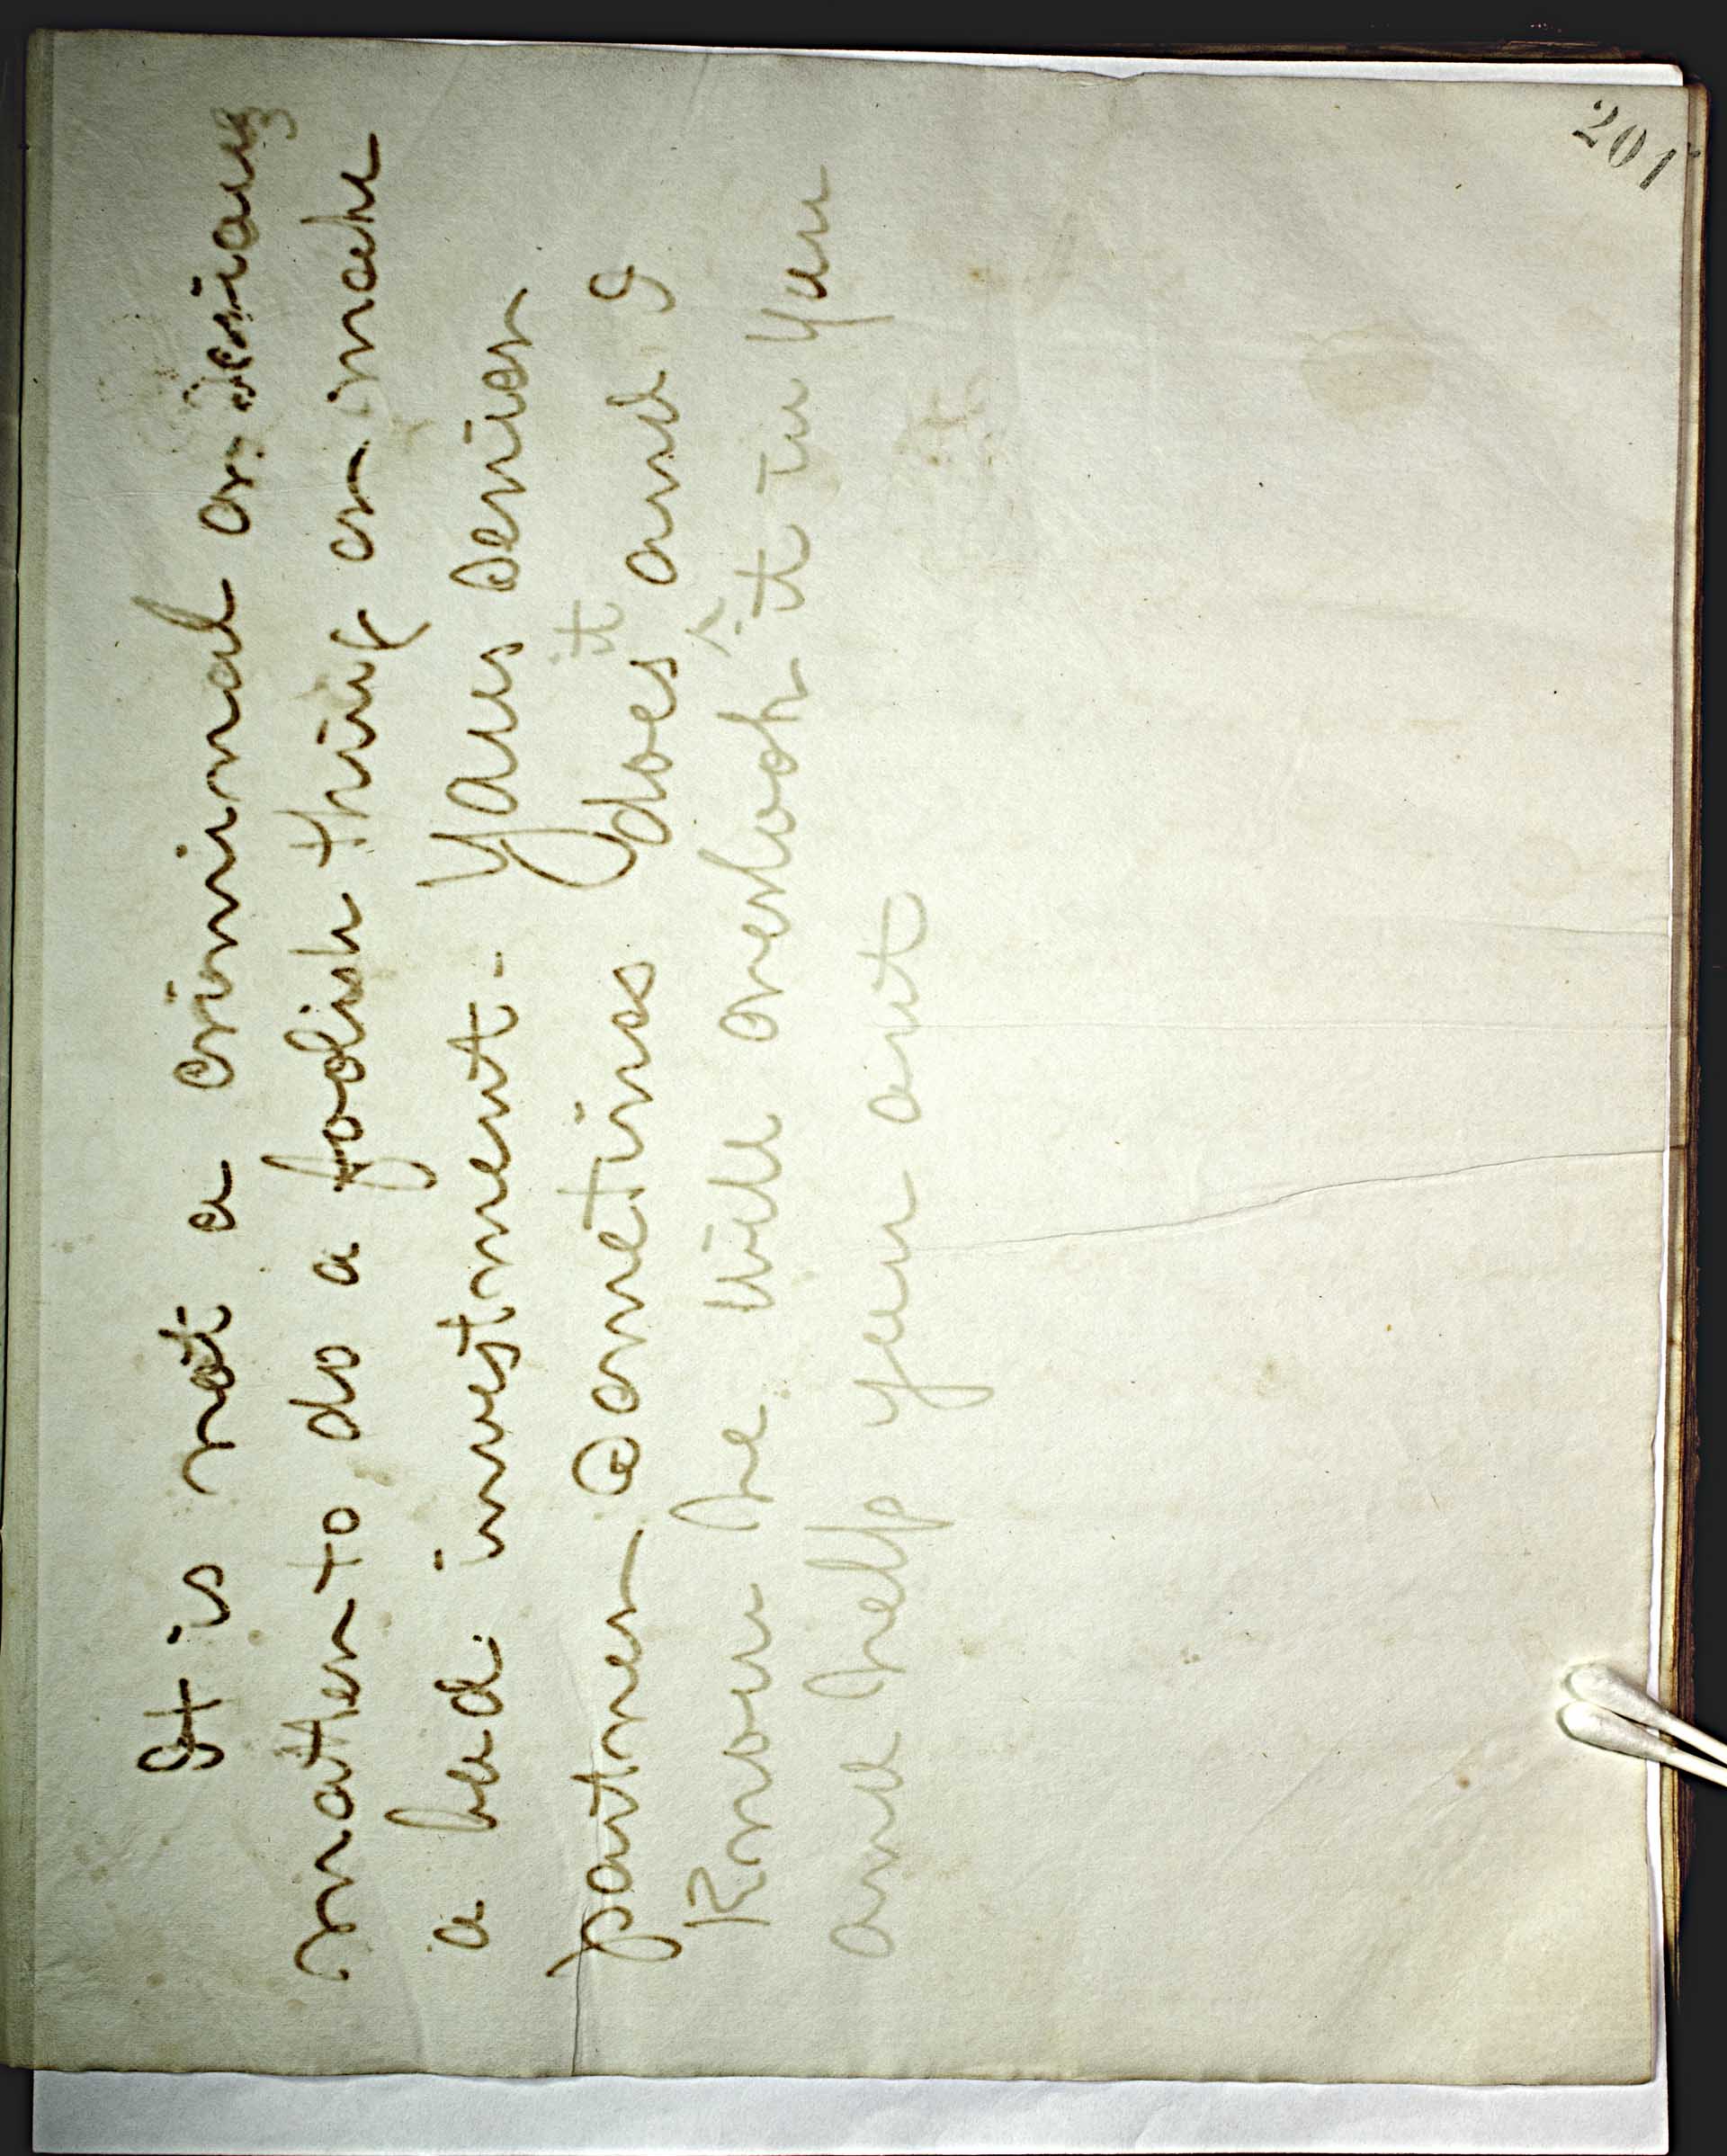 201
It is not a criminal or serious
matter to do a foolish thing or make
a bad investment - Your senior
partner sometimes does it and I
know he will overlook it in you
and help you out